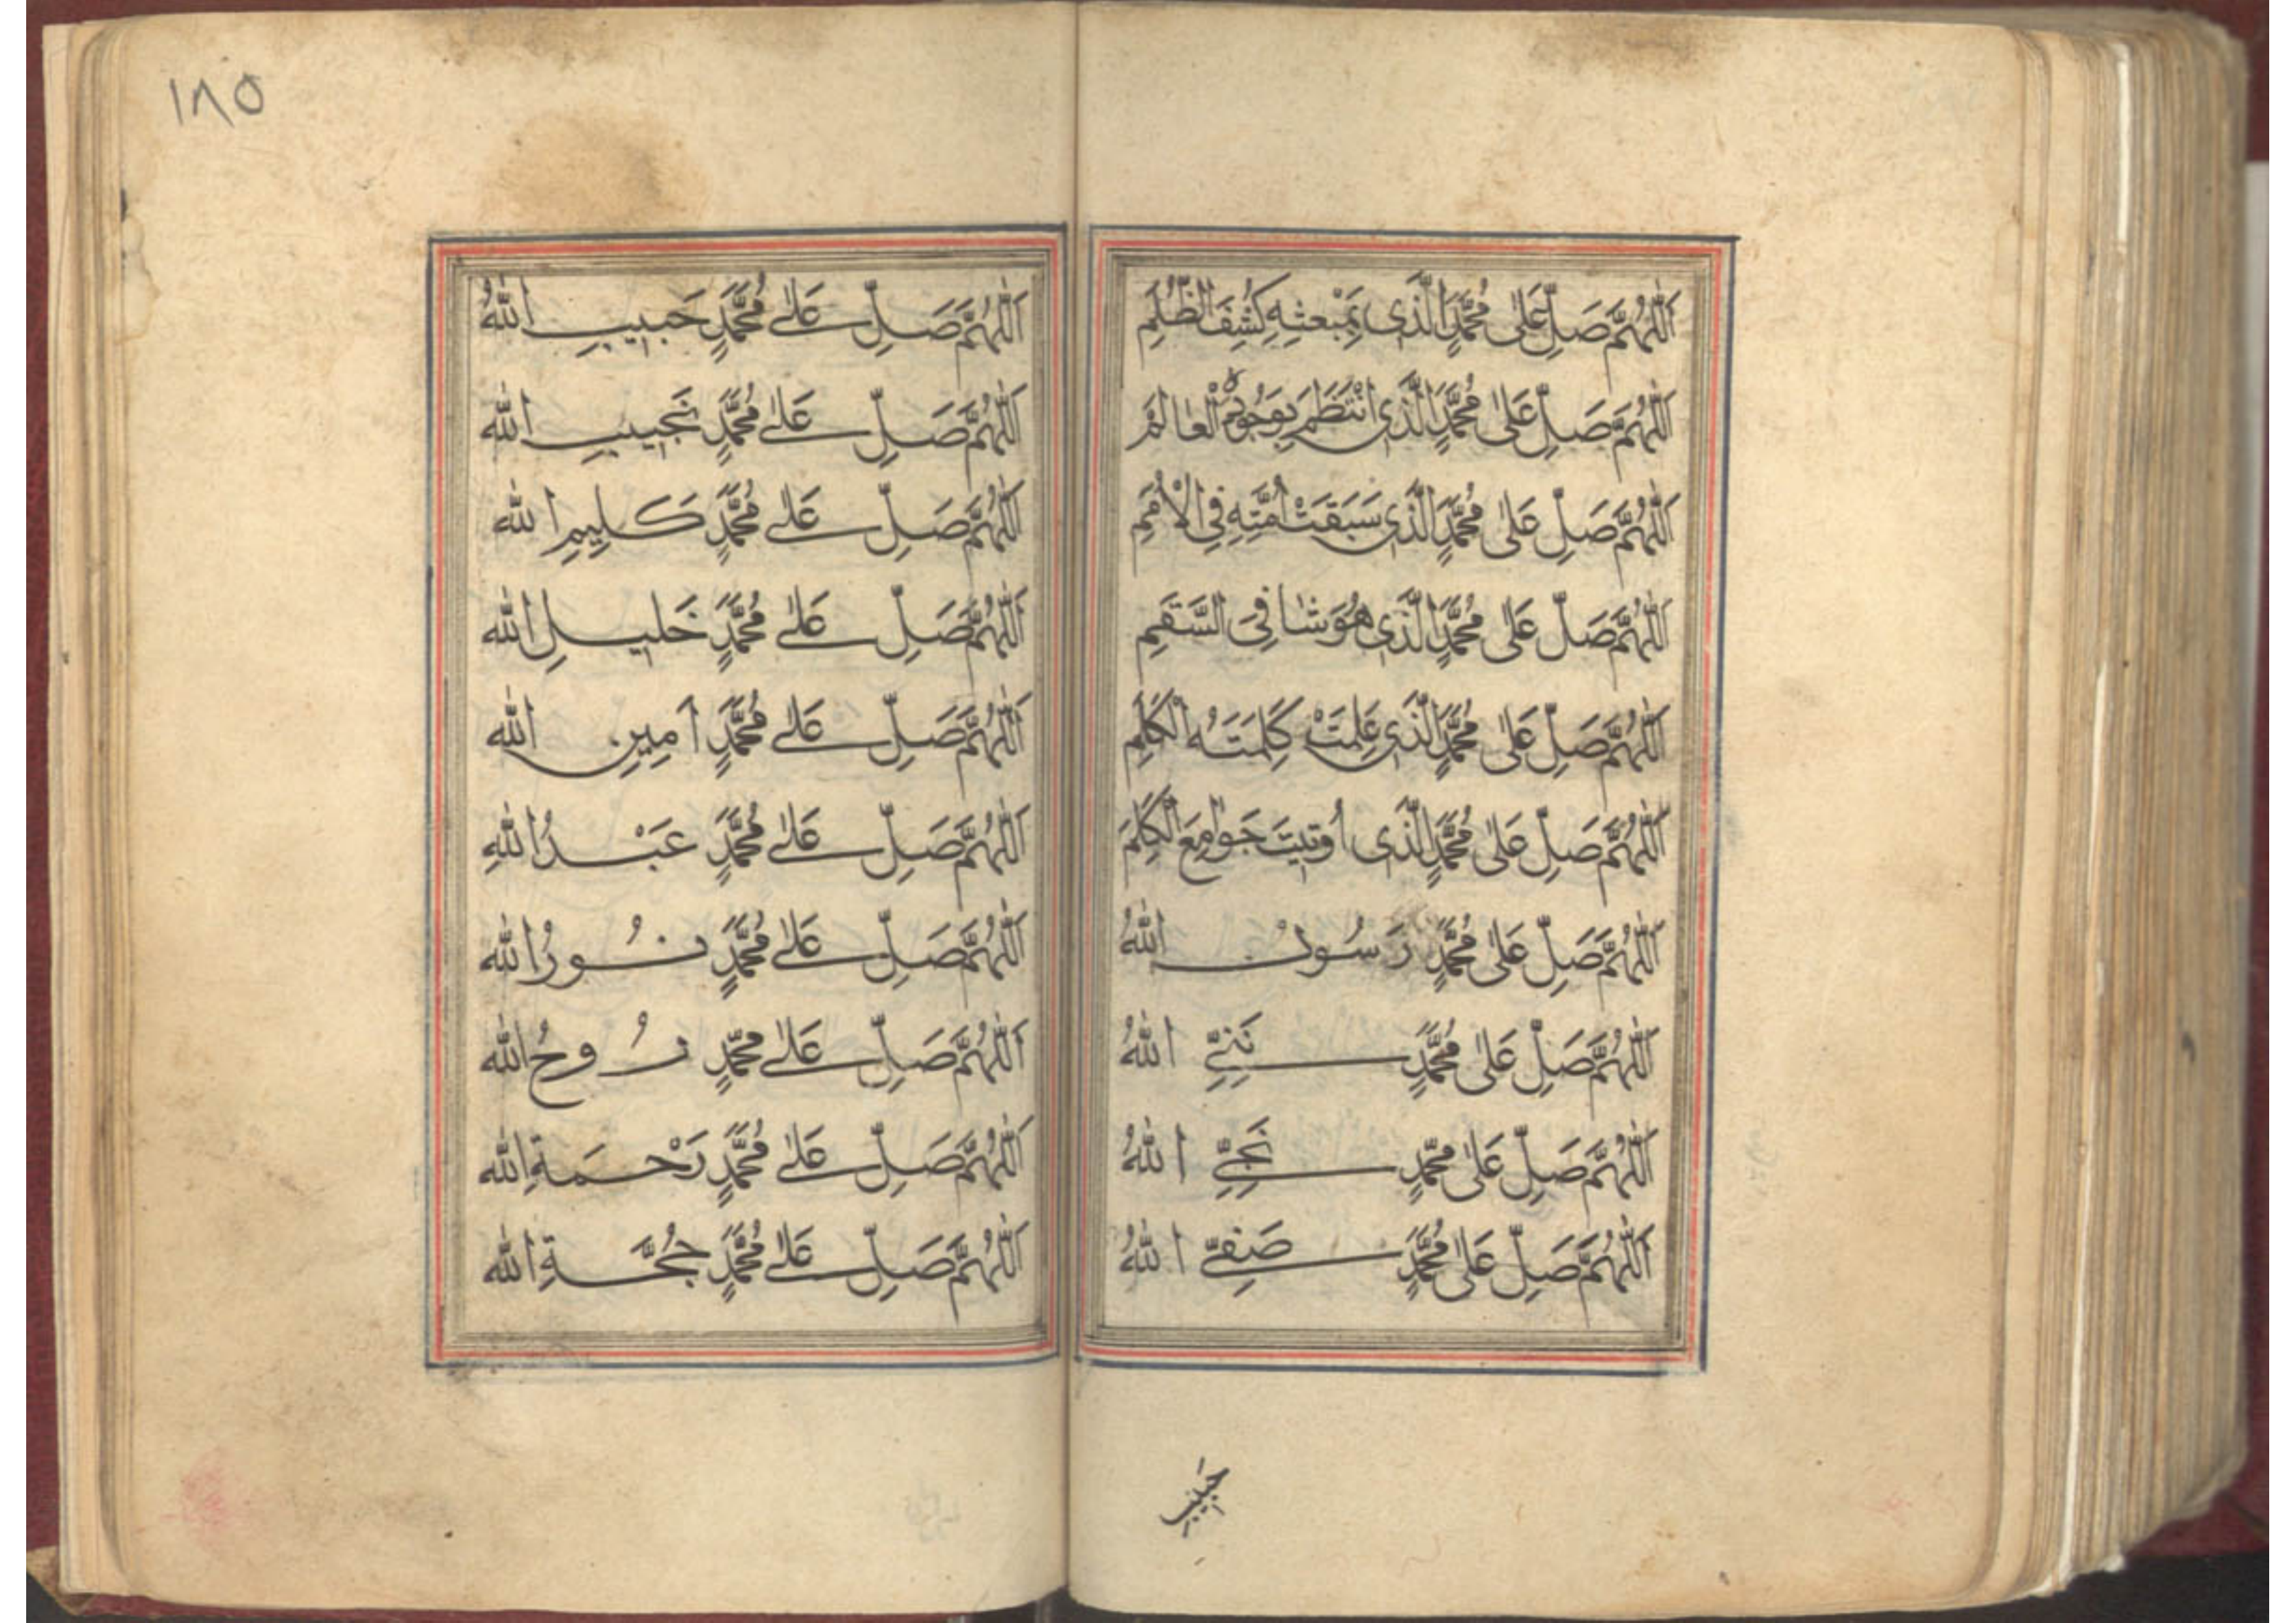 اَللّٰهُمَّ صَلِّ عَلٰى مُحَمَّدٍ الَّذَى بِمَبْعثِهِ كُشِفَ الظُّلَمِ
اَللّٰهُمَّ صَلِّ عَلٰى مُحَمَّدٍ الَّذَى انْتَظَمَ بِوَجُودِهِ الْعٰالَمْ
اَللّٰهُمَّ صَلِّ عَلٰى مُحَمَّدٍ الَّذَى سَبَقَتْ اُمَّتِهِ فِى الْاُمَمِ
اَللّٰهُمَّ صَلِّ عَلٰى مُحَمَّدٍ الَّذَى هُوَ شٰافِىَ السَّقَمِ
اَللّٰهُمَّ صَلِّ عَلٰى مُحَمَّدٍ الَّذَى عَلِمَتْ كَلِمَتَهُ الْكَلِمِ
اَللّٰهُمَّ صَلِّ عَلٰى مُحَمَّدٍ الَّذَى اُوتِيتَ جَوٰامِعَ الْكَلِمَ
اَللّٰهُمَّ صَلِّ عَلٰى مُحَمَّدٍ رَسُولْ اللّٰهُ
اَللّٰهُمَّ صَلِّ عَلٰى مُحَمَّدٍ نَبِىِّ اللّٰهُ
اَللّٰهُمَّ صَلِّ عَلٰى مُحَمَّدٍ نَجِىِّ اللّٰهُ
اَللّٰهُمَّ صَلِّ عَلٰى مُحَمَّدٍ صَفِىِّ اللّٰهُ
حَبيبِ
١٨٥
اَللّٰهُمَّ صَلِّ عَلٰى مُحَمَّدٍ حَبيبِ اللّٰهُ
اَللّٰهُمَّ صَلِّ عَلٰى مُحَمَّدٍ نَجيبِ اللّٰه
اَللّٰهُمَّ صَلِّ عَلٰى مُحَمَّدٍ كَليِمِ اللّٰه
اَللّٰهُمَّ صَلِّ عَلٰى مُحَمَّدٍ خَليلِ اللّٰه
اَللّٰهُمَّ صَلِّ عَلٰى مُحَمَّدٍ اَمِينِ اللّٰه
اَللّٰهُمَّ صَلِّ عَلٰى مُحَمَّدٍ عَبْدُ اللّٰهِ
اَللّٰهُمَّ صَلِّ عَلٰى مُحَمَّدٍ نُورُ اللّٰه
اَللّٰهُمَّ صَلِّ عَلٰى مُحَمَّدٍ رُوحُ اللّٰه
اَللّٰهُمَّ صَلِّ عَلٰى مُحَمَّدٍ رَحْمَةِ اللّٰه
اَللّٰهُمَّ صَلِّ عَلٰى مُحَمَّدٍ حُجَّةِ اللّٰه